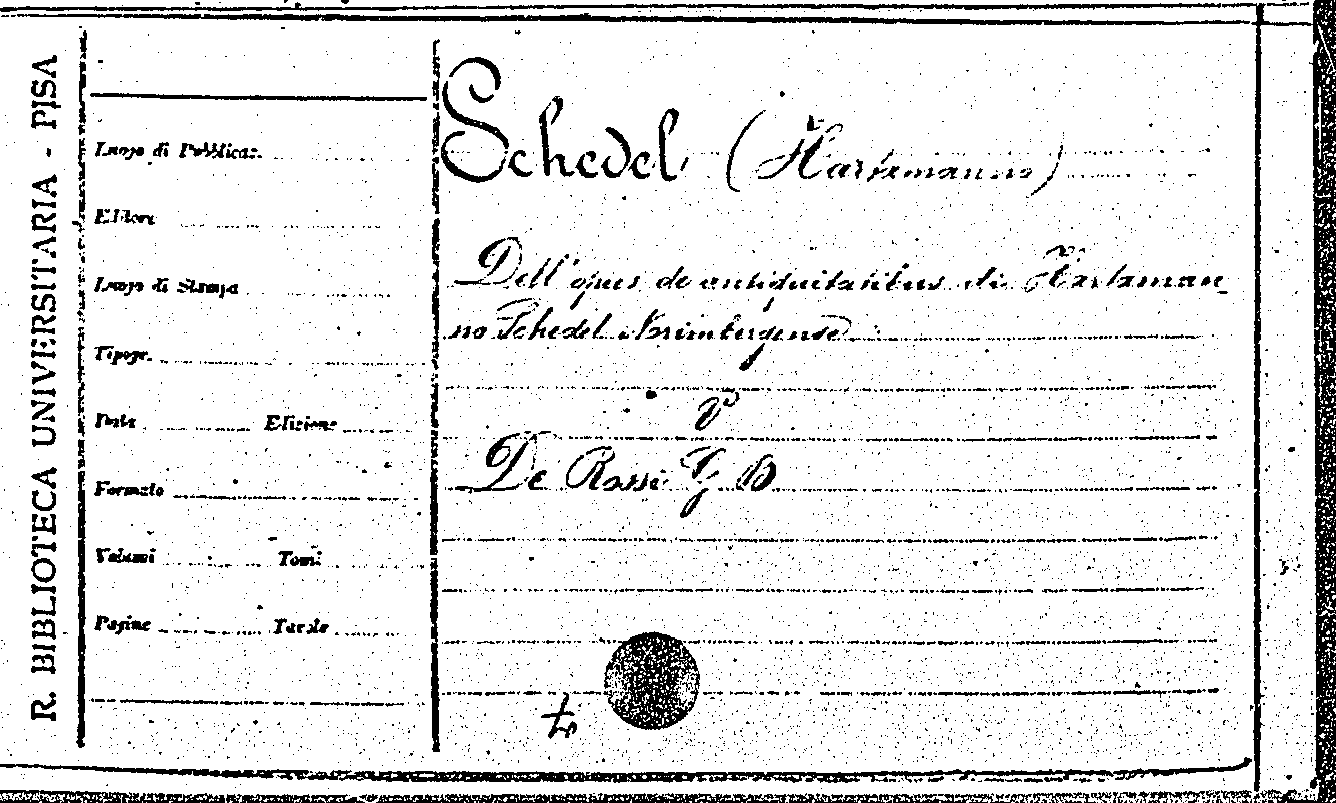 R. BIBLIOTECA UNIVERSITARIA - PISA
Luogo di Pubblicaz.
Editore
Luogo di Stampa
Tipogr.
Data Edizione
Formato
Volumi Tomi
Pagine Tavole
Schedel (Hartemanno)
Dell'opus de antiquitatibus di Hartaman_
no Schedel Norimbergense
V°
De Rossi G B